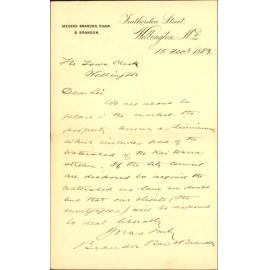 MESSRS BRANDON, SHAW
& BRANDON.
Featherston Street,
Wellington, N.Z.
15 1883
The Town Clerk
Wellington
Dear Sir
We are about to
place in the market the
property known as
which includes part of the
watershed of the Kai Warra
stream. If the City Council
are disposed to acquire the
watershed we have no doubt
but that our clients (the
mortgagees) will be disposed
to deal liberally
Yours truly
Brandon & Brandon